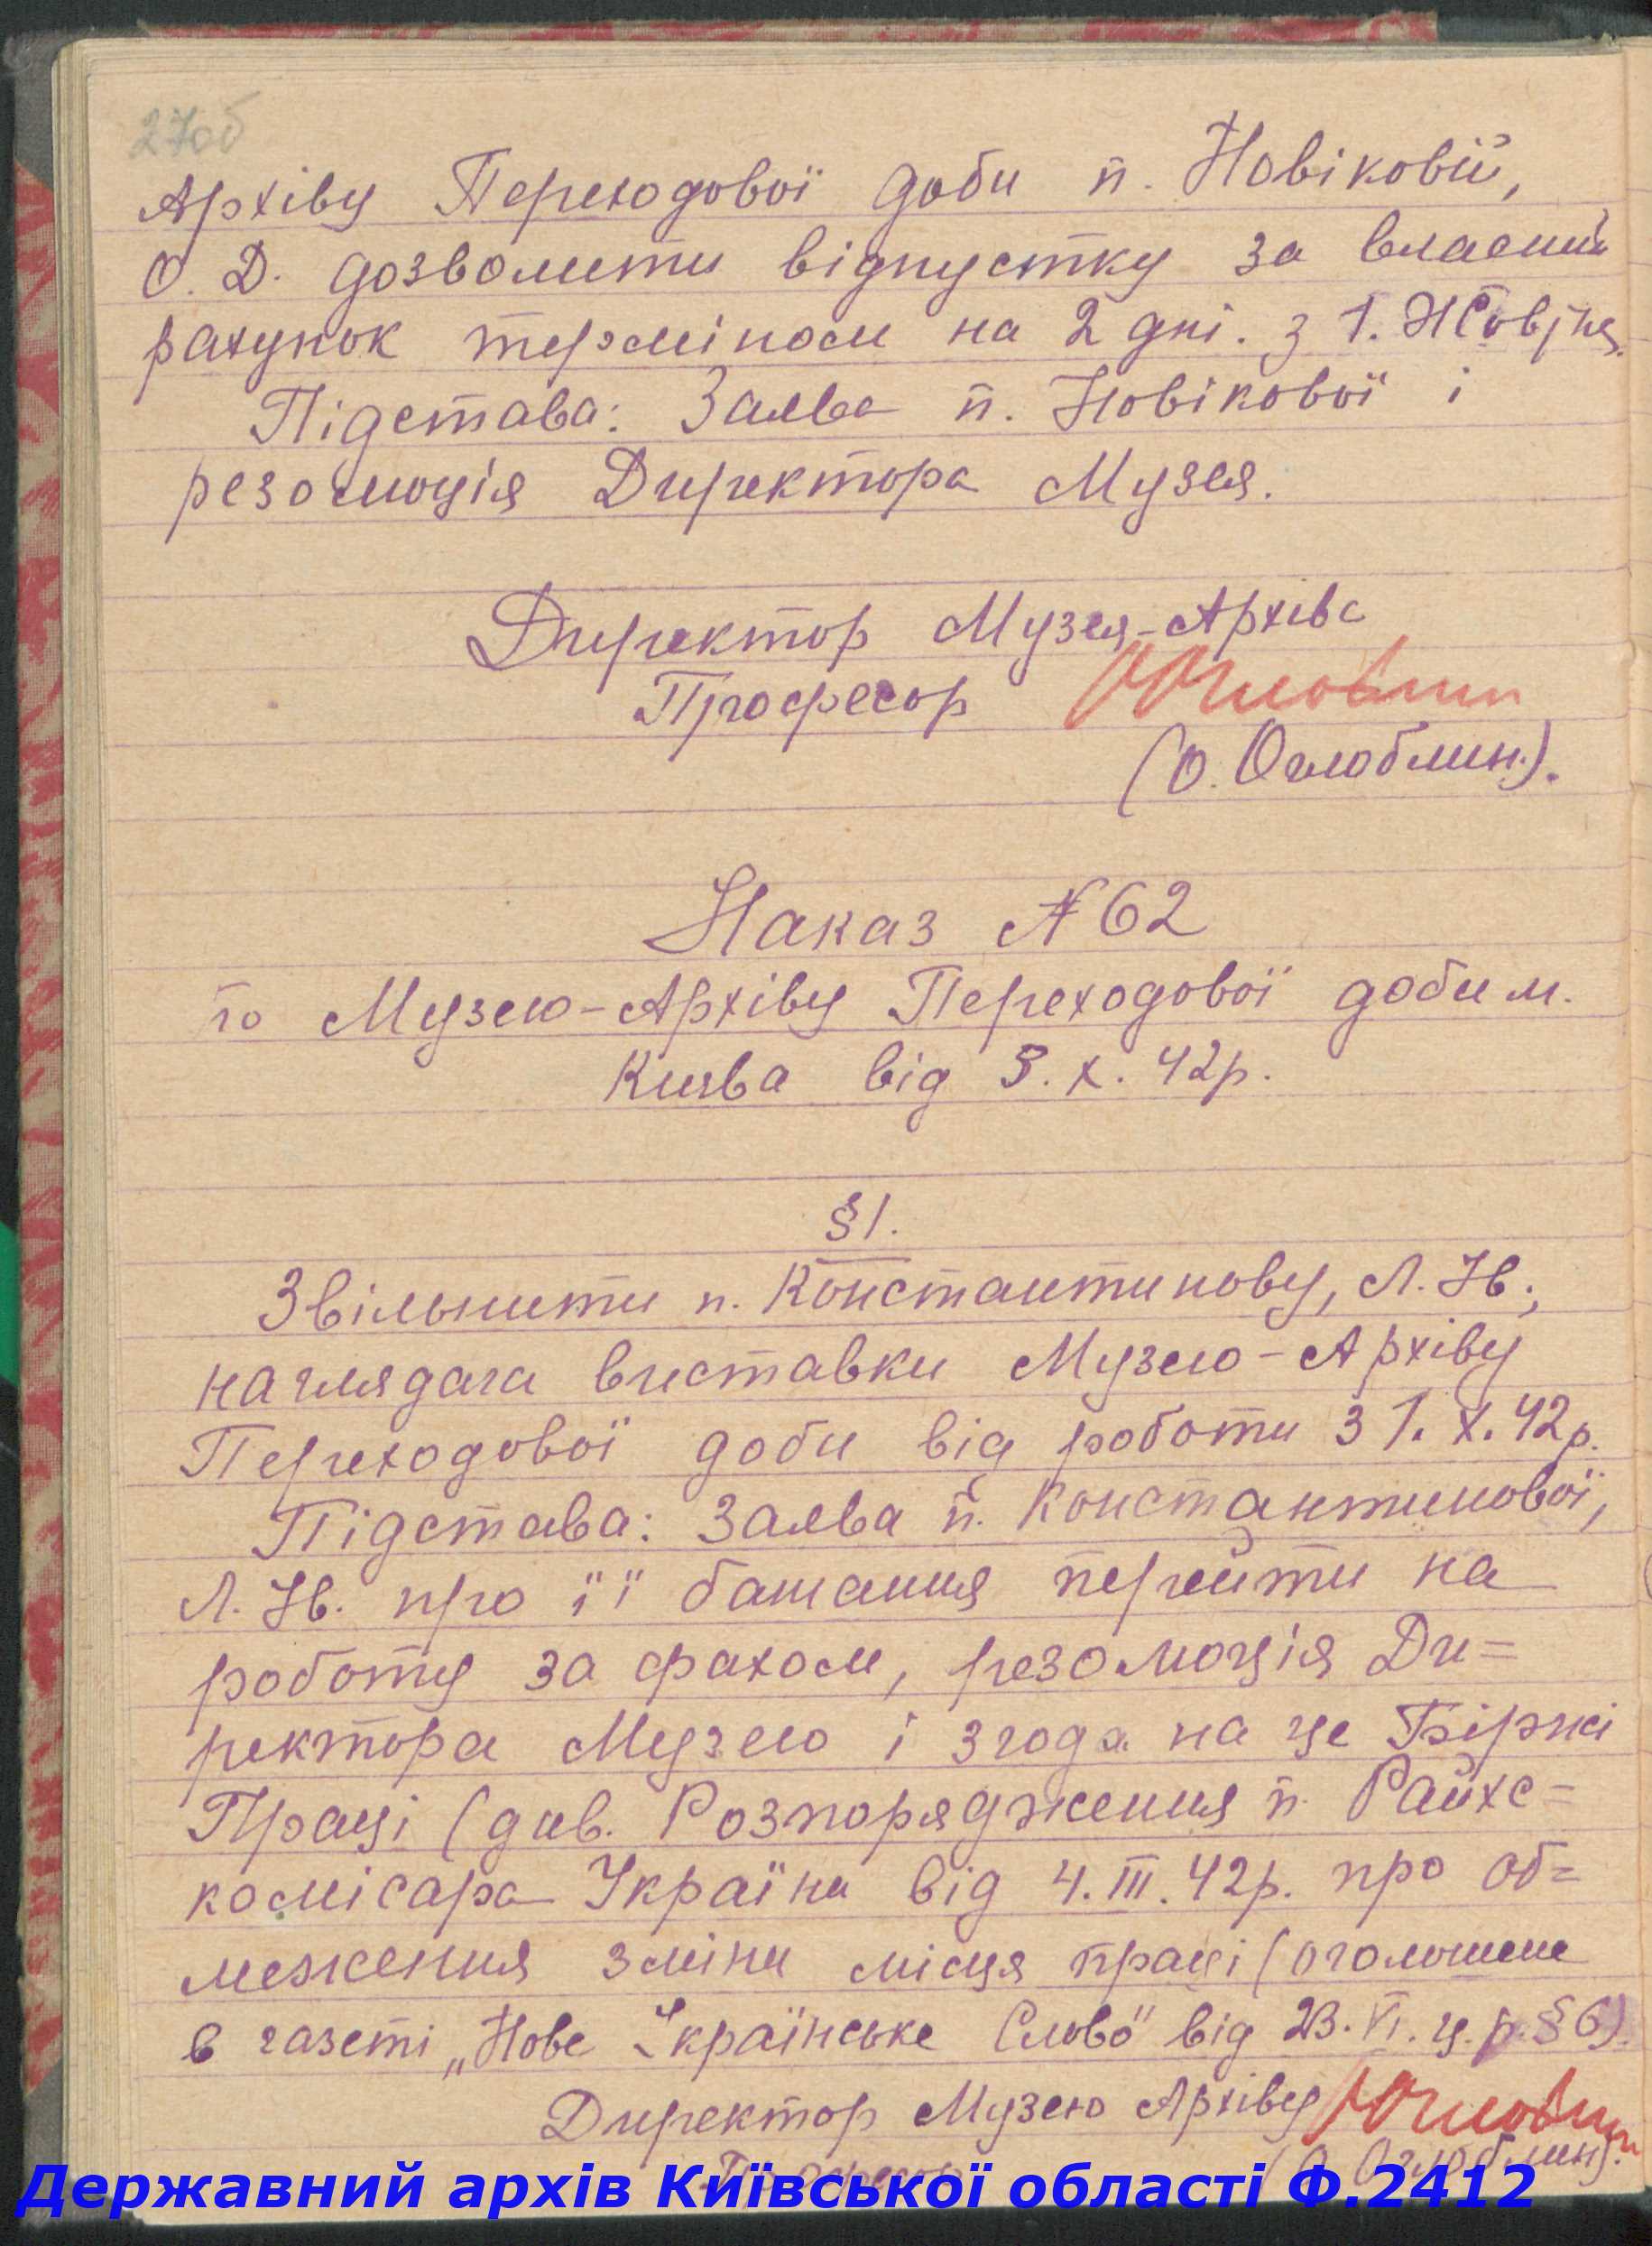 27об
Архіву Переходової доби п. Новіковій,
О. Д. дозволити відпустку за власний
рахунок терміном на 2 дні. з 1. Жовтня.
Підстава: Заява п. Новікової і
резолюція Директора Музея.
Директор Музея-Архіва
Професор
(О. Оглоблин).
Наказ № 62
по Музею-Архіву Переходової доби м.
Києва від 3. X. 42р.
§1.
Звільнити п. Константинову, Л. Ів.,
наглядача виставки Музею-Архіву
Переходової доби від роботи з 1. X. 42р.
Підстава: Заява п. Константинової,
Л. Ів. про її бажання перейти на
роботу за фахом, резолюція Ди=
ректора Музею і згода на це Біржі
Праці (див. Розпорядження п. Райхс=
комісара Україна від 4. III. 42р. про об=
меження зміни місця праці (оголошене
в газеті „Нове Українське Слово" від 23. VI. ц. р. § 6).
Директор Музею Архіву
Професор (О. Оглоблин).
Державний архів Київської області Ф.2412